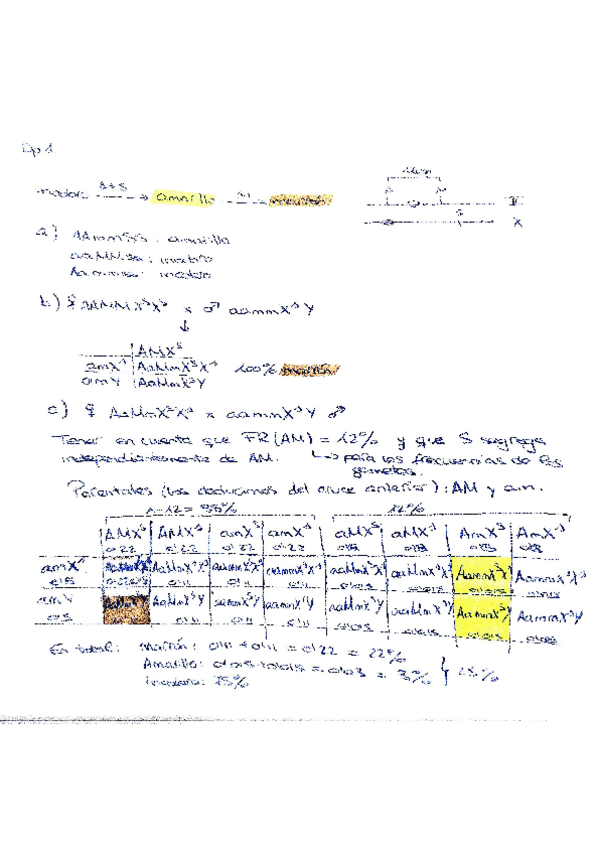 Ep 1
incoloro A+S → amarillo M → marrón
12 cM
A M II
S X
a) AAmmSsS : amarillo
aaMMSs : incoloro
Aammss : incoloro
b) ♀ AAMMX^SX^S × ♂ aammX^sY
↓
AMX^S
amX^s AaMmX^SX^s 100% marrón
amY AaMmX^SY
c) ♀ AaMmX^SX^s × aammX^sY ♂
Tener en cuenta que FR(AM) = 12% y que S segrega
independientemente de AM. ↳ para las frecuencias de los
gametos.
Parentales (los deducimos del cruce anterior): AM y am.
1-12 = 88% 12%
AMX^S AMX^s amX^S amX^s aMX^S aMX^s AmX^S AmX^s
0'22 0'22 0'22 0'22
amX^s AaMmX^SX^s AaMmX^sX^s aammX^SX^s aammX^sX^s aaMmX^SX^s aaMmX^sX^s AammX^SX^s AammX^sX^s
0'5 0'11 0'11 0'11 0'015
amY AaMmX^sY aammX^SY aammX^sY aaMmX^SY aaMmX^sY AammX^SY AammX^sY
0'5 0'11 0'11 0'11 0'015 0'015 0'015
En total: marrón: 0'11 + 0'11 = 0'22 = 22%
Amarillo: 0'015+0'015 = 0'03 = 3% } 25%
Incoloro: 75%